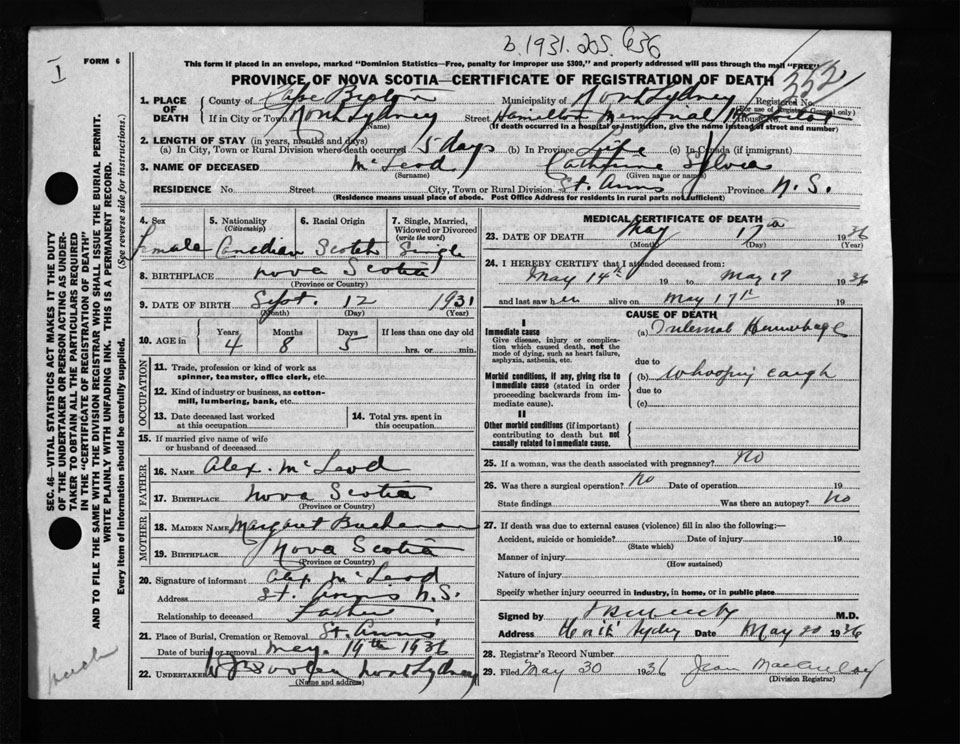 b. 1931. 205. 656
I
FORM 6
This form if placed in an envelope, marked "Dominion Statistics—Free, penalty for improper use $300," and properly addressed will pass through the mail "FREE"
PROVINCE OF NOVA SCOTIA—CERTIFICATE OF REGISTRATION OF DEATH
352
1. PLACE OF DEATH County of Cape Breton Municipality of North Sydney Registered No.
(For use of Registrar General only)
If in City or Town North Sydney Street Hamilton Memorial Hospital House No.
(Name) (If death occurred in a hospital or institution, give the name instead of street and number)
2. LENGTH OF STAY (in years, months and days)
(a) In City, Town or Rural Division where death occurred 5 days (b) In Province Life (c) In Canada (if immigrant)
3. NAME OF DECEASED McLeod Catherine Sylvia
(Surname) (Given name or names)
RESIDENCE No. Street City, Town or Rural Division St. Anns Province N.S.
(Residence means usual place of abode. Post Office Address for residents in rural parts not sufficient)
4. Sex Female
5. Nationality (Citizenship) Canadian
6. Racial Origin Scotch
7. Single, Married, Widowed or Divorced (write the word) Single
8. BIRTHPLACE Nova Scotia
(Province or Country)
9. DATE OF BIRTH Sept. 12 1931
(Month) (Day) (Year)
10. AGE in Years 4 Months 8 Days 5 If less than one day old hrs. or min.
OCCUPATION
11. Trade, profession or kind of work as spinner, teamster, office clerk, etc.
12. Kind of industry or business, as cotton-mill, lumbering, bank, etc.
13. Date deceased last worked at this occupation
14. Total yrs. spent in this occupation
15. If married give name of wife or husband of deceased
FATHER
16. NAME Alex. McLeod
17. BIRTHPLACE Nova Scotia
(Province or Country)
MOTHER
18. MAIDEN NAME Margaret Buchanan
19. BIRTHPLACE Nova Scotia
(Province or Country)
20. Signature of informant Alex McLeod
Address St. Anns N.S.
Relationship to deceased Father
21. Place of Burial, Cremation or Removal St. Anns
Date of burial or removal May 19th 1936
22. UNDERTAKER North Sydney
(Name and address)
MEDICAL CERTIFICATE OF DEATH
23. DATE OF DEATH May 17th 1936
(Month) (Day) (Year)
24. I HEREBY CERTIFY that I attended deceased from:
May 14th 19 to May 17 1936
and last saw her alive on May 17th 19
CAUSE OF DEATH
I
Immediate cause (a) Internal Hemorrhage
Give disease, injury or complication which caused death, not the mode of dying, such as heart failure, asphyxia, asthenia, etc.
due to
Morbid conditions, if any, giving rise to immediate cause (stated in order proceeding backwards from immediate cause).
(b) Whooping cough
due to
(c)
II
Other morbid conditions (if important) contributing to death but not causally related to immediate cause.
25. If a woman, was the death associated with pregnancy? No
26. Was there a surgical operation? No Date of operation 19
State findings Was there an autopsy? No
27. If death was due to external causes (violence) fill in also the following:—
Accident, suicide or homicide? Date of injury 19
(State which)
Manner of injury
(How sustained)
Nature of injury
Specify whether injury occurred in industry, in home, or in public place
Signed by M.D.
Address North Sydney Date May 20 1936
28. Registrar's Record Number
29. Filed May 30 1936 Jean
(Division Registrar)
SEC. 46—VITAL STATISTICS ACT MAKES IT THE DUTY
OF THE UNDERTAKER OR PERSON ACTING AS UNDER-
TAKER TO OBTAIN ALL THE PARTICULARS REQUIRED
IN THE "CERTIFICATE OF REGISTRATION OF DEATH"
AND TO FILE THE SAME WITH THE DIVISION REGISTRAR WHO SHALL ISSUE THE BURIAL PERMIT.
WRITE PLAINLY WITH UNFADING INK. THIS IS A PERMANENT RECORD.
Every item of information should be carefully supplied. (See reverse side for instructions.)